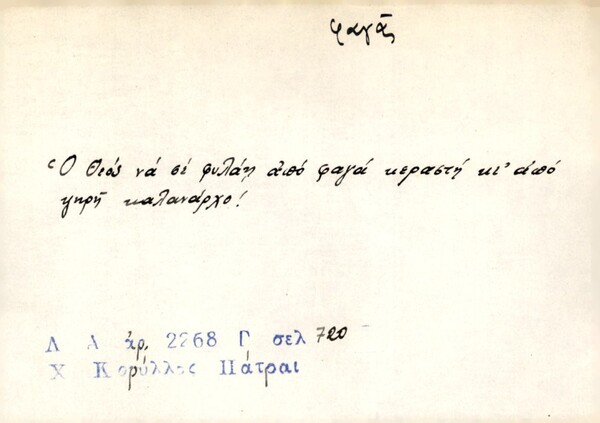 φαγᾶς
Ὁ Θεός νά σέ φυλάῃ ἀπό φαγᾶ κεραστή κι' ἀπό
ψηρῆ καλανάρχο!
Λ Α ἀρ. 2268 Γ σελ 720
Χ Κορύλλος Πάτραι